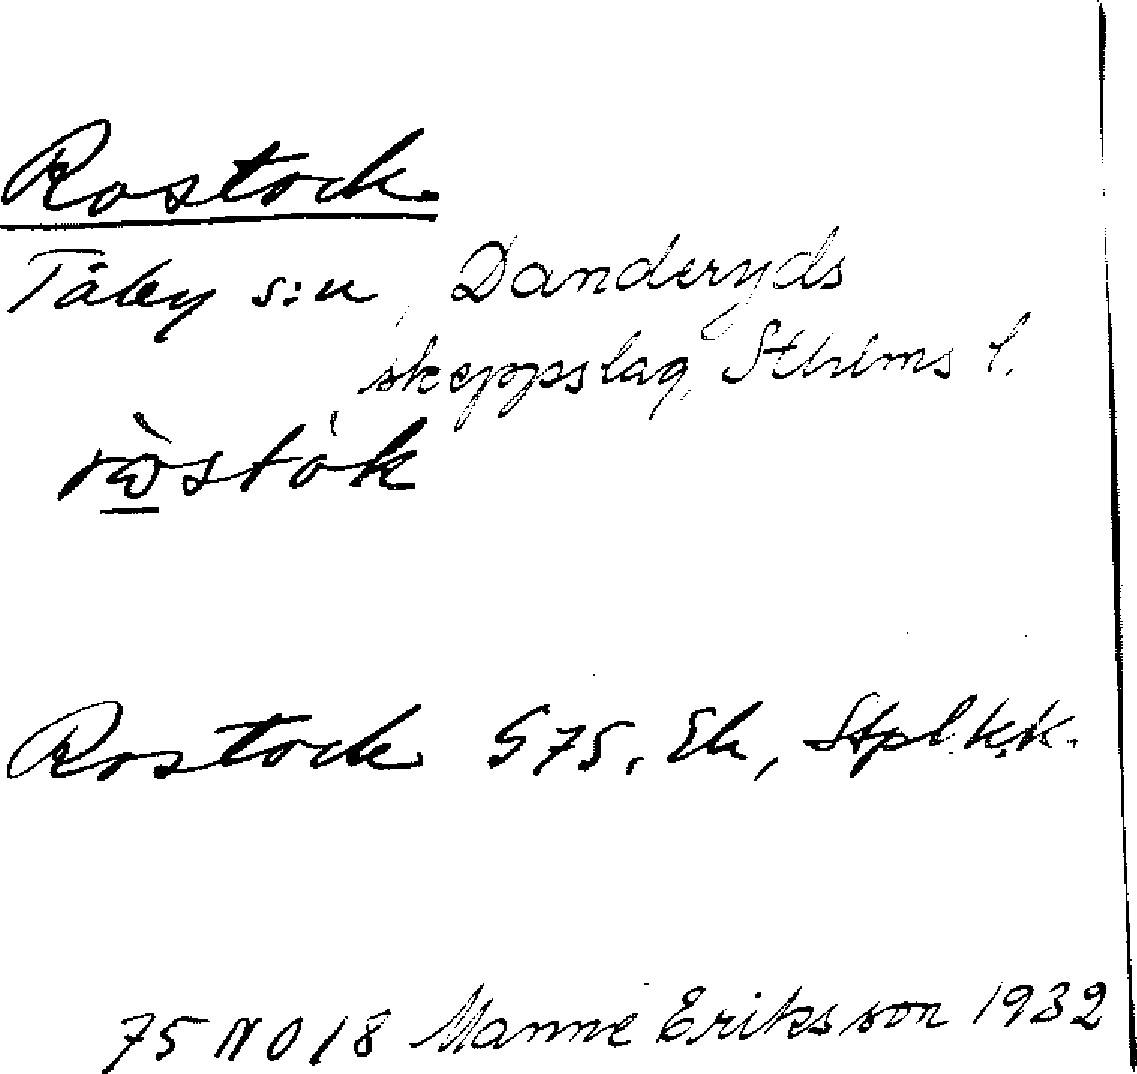 Rostock
Täby s:n, Danderyds
skeppslag, Sthlms l.
ròstók
Rostock G 75, Ek, Stpl.k.k.
75 NO 18 Manne Eriksson 1932